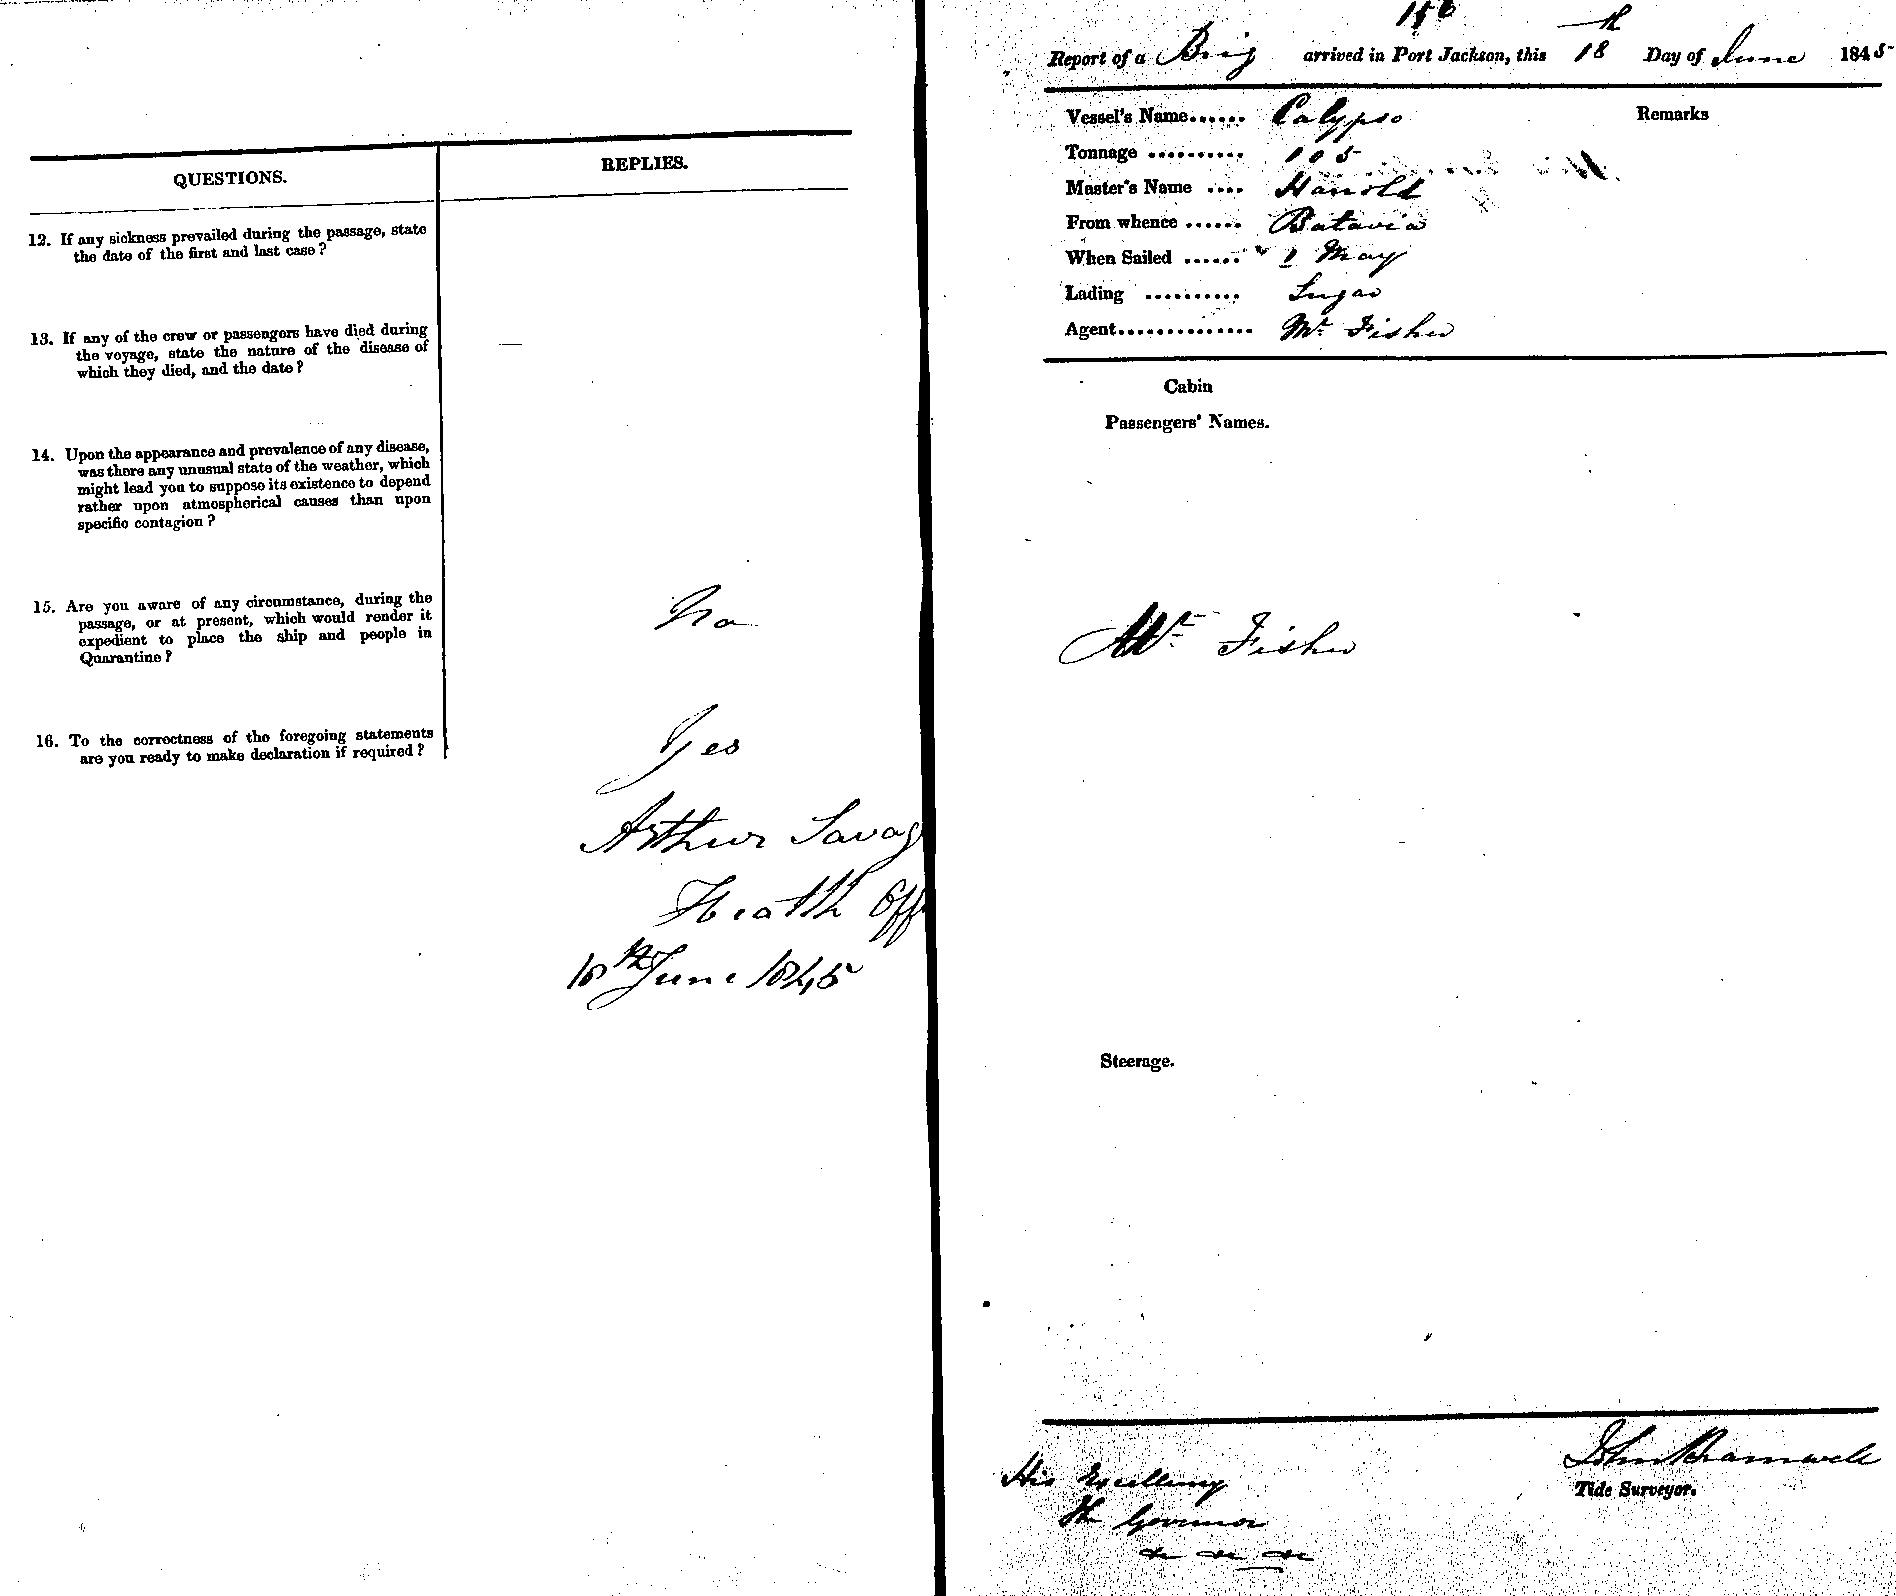 QUESTIONS.
REPLIES.
12. If any sickness prevailed during the passage, state
the date of the first and last case?
13. If any of the crew or passengers have died during
the voyage, state the nature of the disease of
which they died, and the date?
—
14. Upon the appearance and prevalence of any disease,
was there any unusual state of the weather, which
might lead you to suppose its existence to depend
rather upon atmospherical causes than upon
specific contagion?
15. Are you aware of any circumstance, during the
passage, or at present, which would render it
expedient to place the ship and people in
Quarantine?
No
16. To the correctness of the foregoing statements
are you ready to make declaration if required?
Yes
Arthur Savag
Health Off
18th June 1845
156
Report of a Brig arrived in Port Jackson, this 18th Day of June 1845
Vessel's Name...... Calypso
Remarks
Tonnage .......... 105
Master's Name ....
From whence ...... Batavia
When Sailed ...... 1 May
Lading .......... Sugar
Agent.............. Mr Fisher
Cabin
Passengers' Names.
Mr Fisher
Steerage.
John Bramwell
Tide Surveyor.
His Excellency
The Governor
&c &c &c